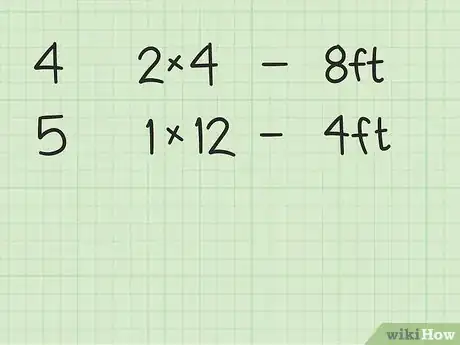 4 2×4 – 8ft
5 1×12 – 4ft
wikiHow